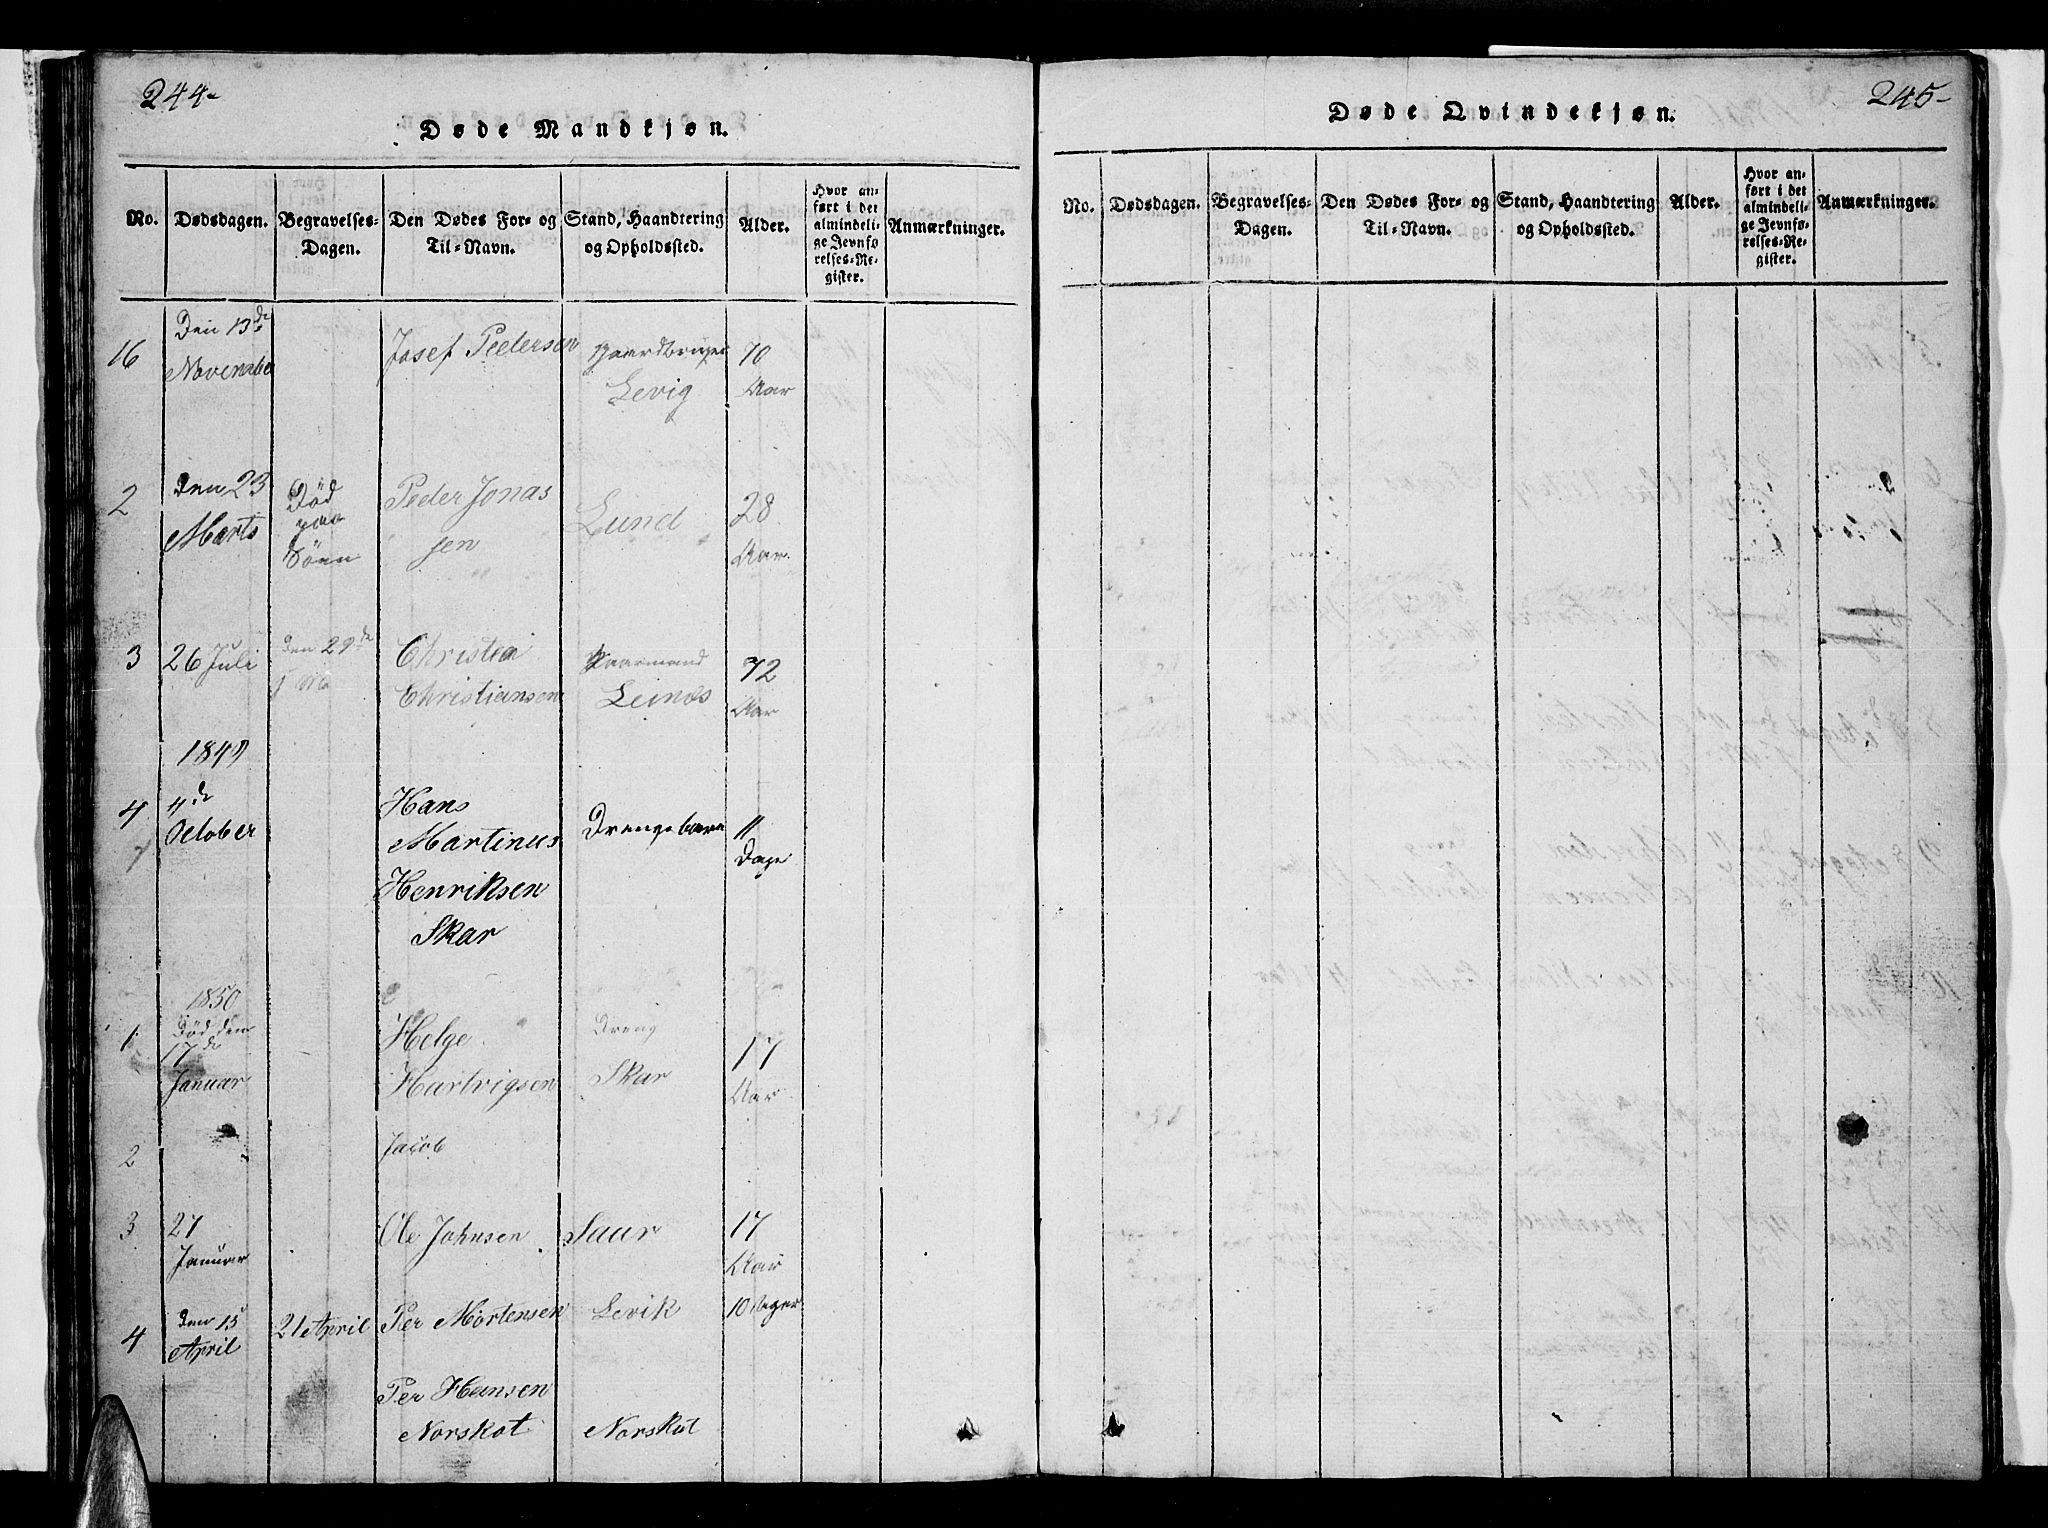 244-
Døde Mandkjøn.
No.
Dødsdagen.
Begravelses-
Dagen.
Den Dødes For- og
Til-Navn.
Stand, Haandtering
og Opholdssted.
Alder.
Hvor an-
ført i det
almindeli-
ge Jevnfø
relses-Re-
gister.
Anmærkninger.
16
Den 13de
Novembe
Josef Pedersen
Gaardbruger
Levig
70
Aar
2
Den 23
Marts
Død
paa
Söen
Peder Jonas
sen
Lund
28
Aar.
3
26 Juli
Den 29de
Christen
Christiansen
Leines
72
Aar
1849
4
4de
October
Hans
Martinus
Henriksen
Skar
Drengebarn
11
Dage
1850
1
Död den
17de
Januar
Helge
Hartvigsen
Dreng
Skar
17
Aar
2
Jacob
3
27
Januar
Ole Johnsen
Saur
17
Aar
4
Den 15
April
21 April
Per Mortensen
Levik
10 Uger
Per Hansen
Norskot
Norskot
245-
Døde Qvindekjøn.
No.
Dødsdagen.
Begravelses-
Dagen.
Den Dødes For- og
Til-Navn.
Stand, Haandtering
og Opholdssted.
Alder.
Hvor an-
ført i det
almindeli-
ge Jevnfø-
relses-Re-
gister.
Anmærkninger.